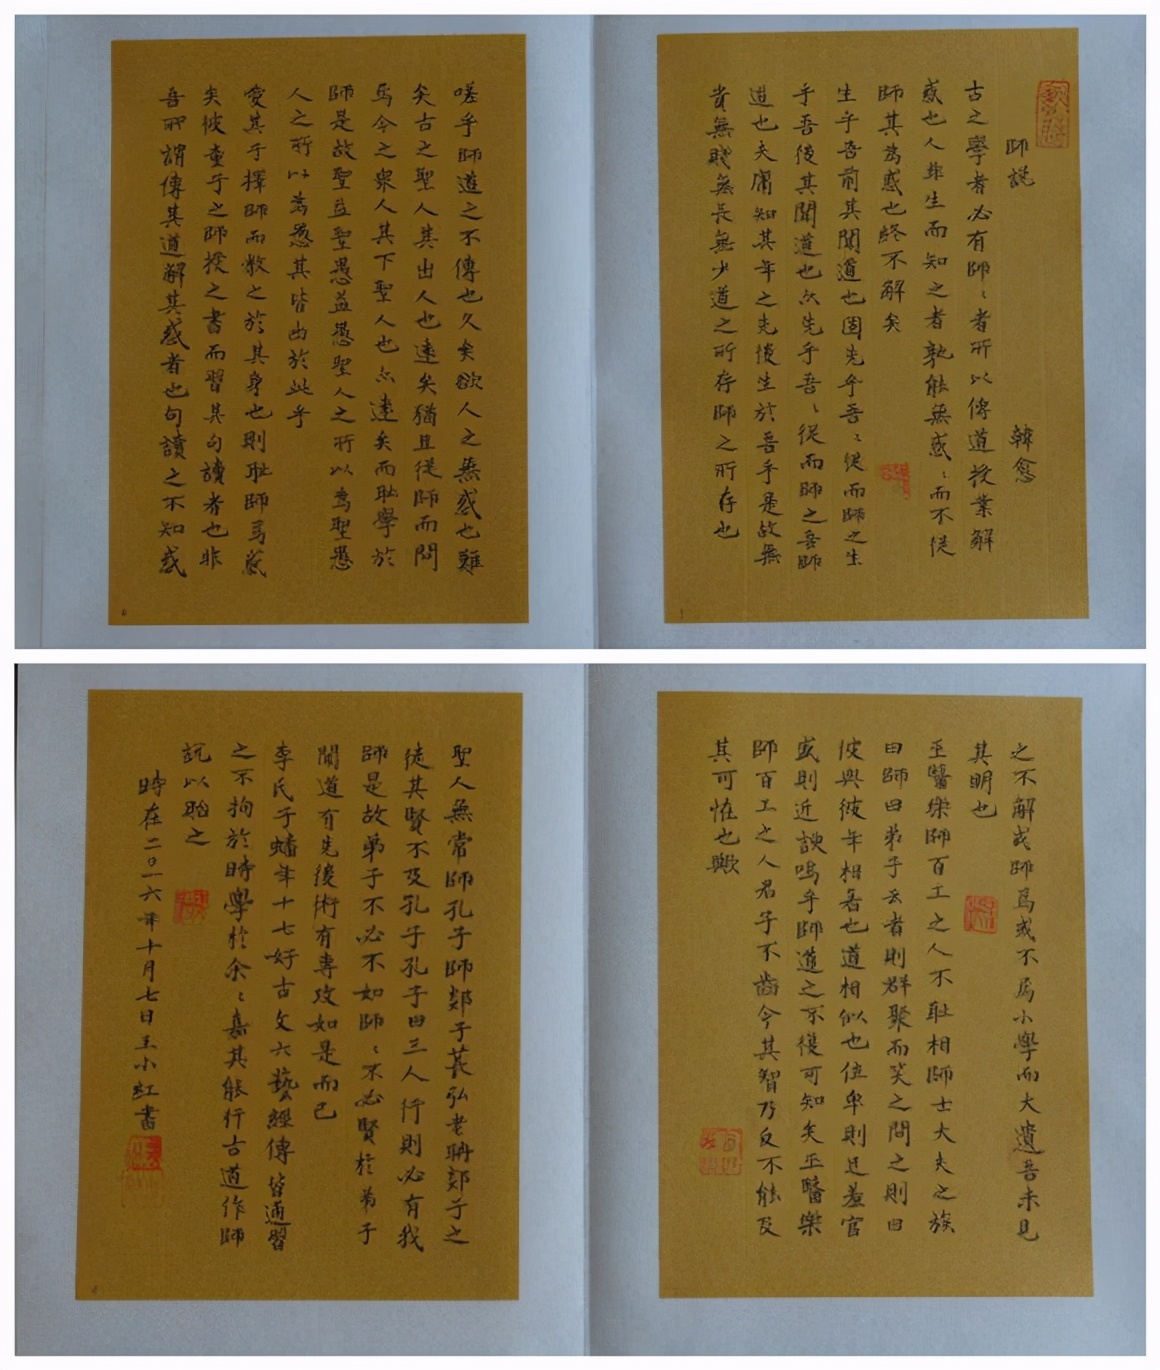 師説 韓愈
古之學者必有師〻者所以傳道授業解
惑也人非生而知之者孰能無惑〻而不從
師其爲惑也終不解矣
生乎吾前其聞道也固先乎吾〻從而師之生
乎吾後其聞道也亦先乎吾〻從而師之吾師
道也夫庸知其年之先後生於吾乎是故無
貴無賤無長無少道之所存師之所存也
嗟乎師道之不傳也久矣欲人之無惑也難
矣古之聖人其出人也遠矣猶且從師而問
焉今之衆人其下聖人也亦遠矣而耻學於
師是故聖益聖愚益愚聖人之所以爲聖愚
人之所以爲愚其皆出於此乎
愛其子擇師而教之於其身也則耻師焉惑
矣彼童子之師授之書而習其句讀者也非
吾所謂傳其道解其惑者也句讀之不知惑
之不解或師焉或不焉小學而大遺吾未見
其明也
巫醫樂師百工之人不耻相師士大夫之族
曰師曰弟子云者則群聚而笑之問之則曰
彼與彼年相若也道相似也位卑則足羞官
盛則近諛嗚乎師道之不復可知矣巫醫樂
師百工之人君子不齒今其智乃反不能及
其可怪也歟
聖人無常師孔子師郯子萇弘老聃郯子之
徒其賢不及孔子孔子曰三人行則必有我
師是故弟子不必不如師〻不必賢於弟子
聞道有先後術有專攻如是而已
李氏子蟠年十七好古文六藝經傳皆通習
之不拘於時學於余〻嘉其能行古道作師
説以貽之
時在二〇一六年十月七日王小紅書